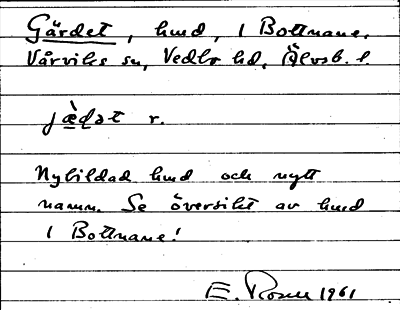 Gärdet, hmd, i Bottnane.
Vårviks sn, Vedbo hd, Älvsb. l.
jæ̀ḍət r.
Nybildad hmd och nytt
namn. Se översikt av hmd
i Bottnane!
E. Rosell 1961